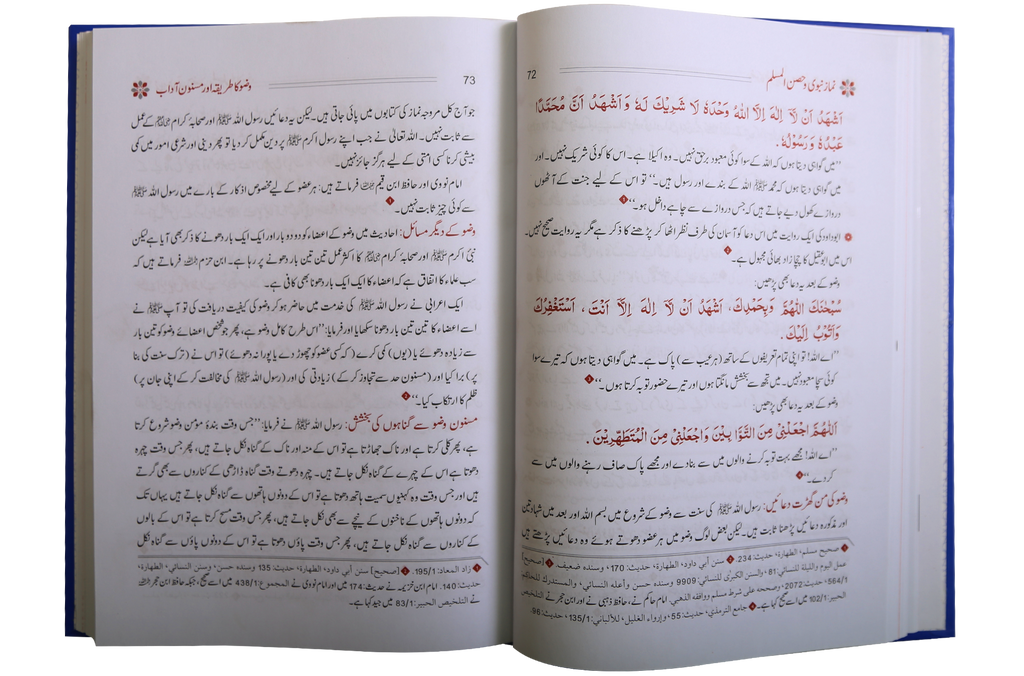 72
نماز نبوی و حصن المسلم
اَشْهَدُ اَنْ لَّآ اِلٰهَ اِلَّا اللّٰهُ وَحْدَهٗ لَا شَرِيْكَ لَهٗ وَ اَشْهَدُ اَنَّ مُحَمَّدًا
عَبْدُهٗ وَ رَسُوْلُهٗ.
”میں گواہی دیتا ہوں کہ اللہ کے سوا کوئی معبود برحق نہیں۔ وہ اکیلا ہے۔ اس کا کوئی شریک نہیں۔ اور
میں گواہی دیتا ہوں کہ محمد ﷺ اللہ کے بندے اور رسول ہیں۔“ تو اس کے لیے جنت کے آٹھوں
دروازے کھول دیے جاتے ہیں کہ جس دروازے سے چاہے داخل ہو۔“
ابوداود کی ایک روایت میں اس دعا کو آسمان کی طرف نظر اٹھا کر پڑھنے کا ذکر ہے مگر یہ روایت صحیح نہیں۔
اس میں ابوعقیل کا چچا زاد بھائی مجہول ہے۔
وضو کے بعد یہ دعا بھی پڑھیں:
سُبْحٰنَكَ اللّٰهُمَّ وَبِحَمْدِكَ، اَشْهَدُ اَنْ لَّآ اِلٰهَ اِلَّآ اَنْتَ، اَسْتَغْفِرُكَ
وَاَتُوْبُ اِلَيْكَ.
”اے اللہ! تو اپنی تمام تعریفوں کے ساتھ (ہر عیب سے) پاک ہے۔ میں گواہی دیتا ہوں کہ تیرے سوا
کوئی سچا معبود نہیں۔ میں تجھ سے بخشش مانگتا ہوں اور تیرے حضور توبہ کرتا ہوں۔“
وضو کے بعد یہ دعا بھی پڑھیں:
اَللّٰهُمَّ اجْعَلْنِيْ مِنَ التَّوَّابِيْنَ وَاجْعَلْنِيْ مِنَ الْمُتَطَهِّرِيْنَ.
”اے اللہ! مجھے بہت توبہ کرنے والوں میں سے بنادے اور مجھے پاک صاف رہنے والوں میں سے
کردے۔“
وضو کی من گھڑت دعائیں: رسول اللہ ﷺ کی سنت سے وضو کے شروع میں بسم اللہ اور بعد میں شہادتین
اور مذکورہ دعائیں پڑھنا ثابت ہیں۔ لیکن بعض لوگ وضو میں ہر عضو دھوتے ہوئے وہ دعائیں پڑھتے ہیں
صحيح مسلم، الطهارة، حديث: 234. سنن أبي داود، الطهارة، حديث: 170، وسنده ضعيف. [صحيح]
عمل اليوم والليلة للنسائي: 81 والسنن الكبرى للنسائي: 9909 وسنده حسن وأعله النسائي، والمستدرك للحاكم:
564/1، حديث: 2072، وصححه على شرط مسلم ووافقه الذهبي. امام حاکم نے، حافظ ذہبی نے اور ابن حجر نے التلخيص
الحبير: 102/1 میں اسے صحیح کہا ہے۔ جامع الترمذي، حديث: 55، وإرواء الغليل، للألباني: 135/1، حديث: 96.
73
وضو کا طریقہ اور مسنون آداب
جو آج کل مروجہ نماز کی کتابوں میں پائی جاتی ہیں۔ لیکن یہ دعائیں رسول اللہ ﷺ اور صحابہ کرام کے عمل
سے ثابت نہیں۔ اللہ تعالیٰ نے جب اپنے رسول اکرم ﷺ پر دین مکمل کر دیا تو پھر دینی اور شرعی امور میں کمی
بیشی کرنا کسی امتی کے لیے ہرگز جائز نہیں۔
امام نووی اور حافظ ابن قیم فرماتے ہیں: ہر عضو کے لیے مخصوص اذکار کے بارے میں رسول اللہ ﷺ
سے کوئی چیز ثابت نہیں۔
وضو کے دیگر مسائل: احادیث میں وضو کے اعضاء کو دو دو بار اور ایک ایک بار دھونے کا ذکر بھی آیا ہے لیکن
نبی اکرم ﷺ اور صحابہ کرام کا اکثر عمل تین تین بار دھونے پر رہا ہے۔ ابن حزم فرماتے ہیں کہ
سب علماء کا اتفاق ہے کہ اعضاء کا ایک ایک بار دھونا بھی کافی ہے۔
ایک اعرابی نے رسول اللہ ﷺ کی خدمت میں حاضر ہو کر وضو کی کیفیت دریافت کی تو آپ ﷺ نے
اسے اعضاء کا تین تین بار دھونا سکھایا اور فرمایا: ”اس طرح کامل وضو ہے، پھر جو شخص اعضائے وضو کو تین بار
سے زیادہ دھوئے یا (یوں) کمی کرے (کہ کسی عضو کو چھوڑ دے یا پورا نہ دھوئے) تو اس نے (ترک سنت کی بنا
پر) برا کیا اور (مسنون حد سے تجاوز کر کے) زیادتی کی اور (رسول اللہ ﷺ کی مخالفت کر کے اپنی جان پر)
ظلم کا ارتکاب کیا۔“
مسنون وضو سے گناہوں کی بخشش: رسول اللہ ﷺ نے فرمایا: ”جس وقت بندۂ مؤمن وضو شروع کرتا
ہے، پھر کلی کرتا ہے اور ناک جھاڑتا ہے تو اس کے منہ اور ناک کے گناہ نکل جاتے ہیں، پھر جس وقت چہرہ
دھوتا ہے اس کے چہرے کے گناہ نکل جاتے ہیں۔ چہرہ دھوتے وقت گناہ ڈاڑھی کے کناروں سے بھی گرتے
ہیں اور جس وقت وہ کہنیوں سمیت ہاتھ دھوتا ہے تو اس کے دونوں ہاتھوں سے گناہ نکل جاتے ہیں یہاں تک
کہ دونوں ہاتھوں کے ناخنوں کے نیچے سے بھی نکل جاتے ہیں، پھر جس وقت مسح کرتا ہے تو اس کے بالوں
کے کناروں سے گناہ نکل جاتے ہیں، پھر جس وقت پاؤں دھوتا ہے تو اس کے دونوں پاؤں سے گناہ نکل
زاد المعاد: 195/1. [صحيح] سنن أبي داود، الطهارة، حديث: 135 وسنده حسن، وسنن النسائي، الطهارة،
حديث: 140. امام ابن خزیمہ نے حدیث: 174 میں اور امام نووی نے المجموع: 438/1 میں اسے صحیح، جبکہ حافظ ابن حجر
نے التلخيص الحبير: 83/1 میں جید کہا ہے۔